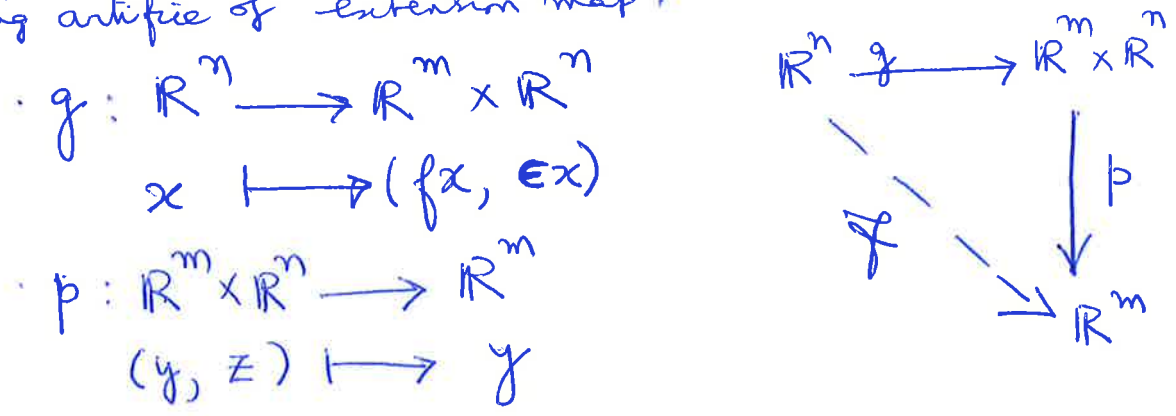 artifice of extension map.
· g : ℝⁿ ⟶ ℝᵐ × ℝⁿ
x ⟼ (fx, ϵx)
· p : ℝᵐ × ℝⁿ ⟶ ℝᵐ
(y, z) ⟼ y
ℝⁿ g ⟶ ℝᵐ × ℝⁿ
p
f
ℝᵐ